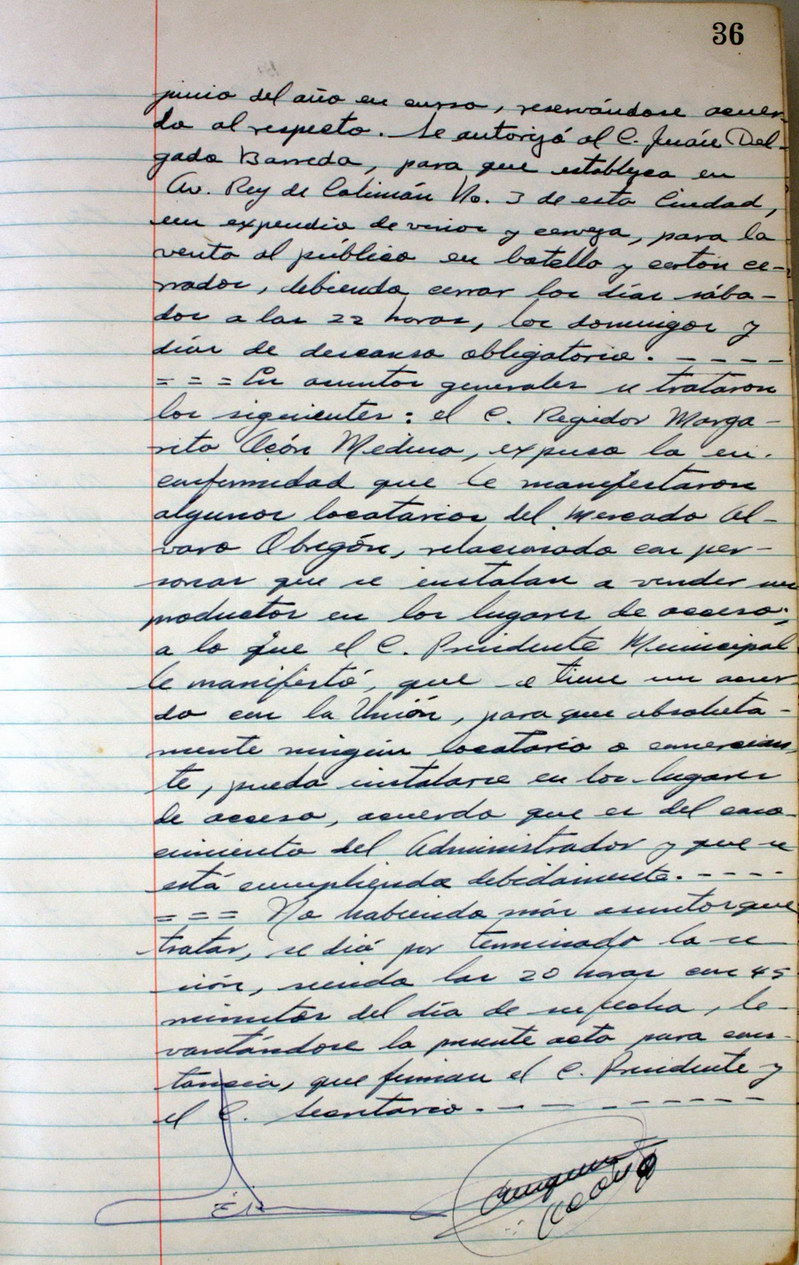 36
junio del año en curso, reservándose acuer-
do al respecto. Se autorizó al C. Juán Del-
gado Barreda, para que establezca en
Av. Rey de Colimán No. 3 de esta Ciudad,
un expendio de vinos y cerveza, para la
venta al público en botella y cartón ce-
rrados, debiendo cerrar los días sába-
dos a las 22 horas, los domingos y
días de descanso obligatorio. - - - -
= = = En asuntos generales se trataron
los siguientes: el C. Regidor Marga-
rito Ocón Medina, expuso la in-
conformidad que le manifestaron
algunos locatarios del Mercado Al-
varo Obregón, relacionada con per-
sonas que se instalan a vender sus
productos en los lugares de acceso;
a lo que el C. Presidente Municipal
le manifestó, que se tiene un acuer-
do con la Unión, para que absoluta-
mente ningún locatario o comercian-
te, pueda instalarse en los lugares
de acceso, acuerdo que es del cono-
cimiento del Administrador y que se
está cumpliendo debidamente. - - - -
= = = No habiendo más asuntos que
tratar, se dió por terminado la se
sión, siendo las 20 horas con 45
minutos del día de su fecha, le-
vantándose la presente acta para cons-
tancia, que firman el C. Presidente y
el C. Secretario. - - - - - - - - -